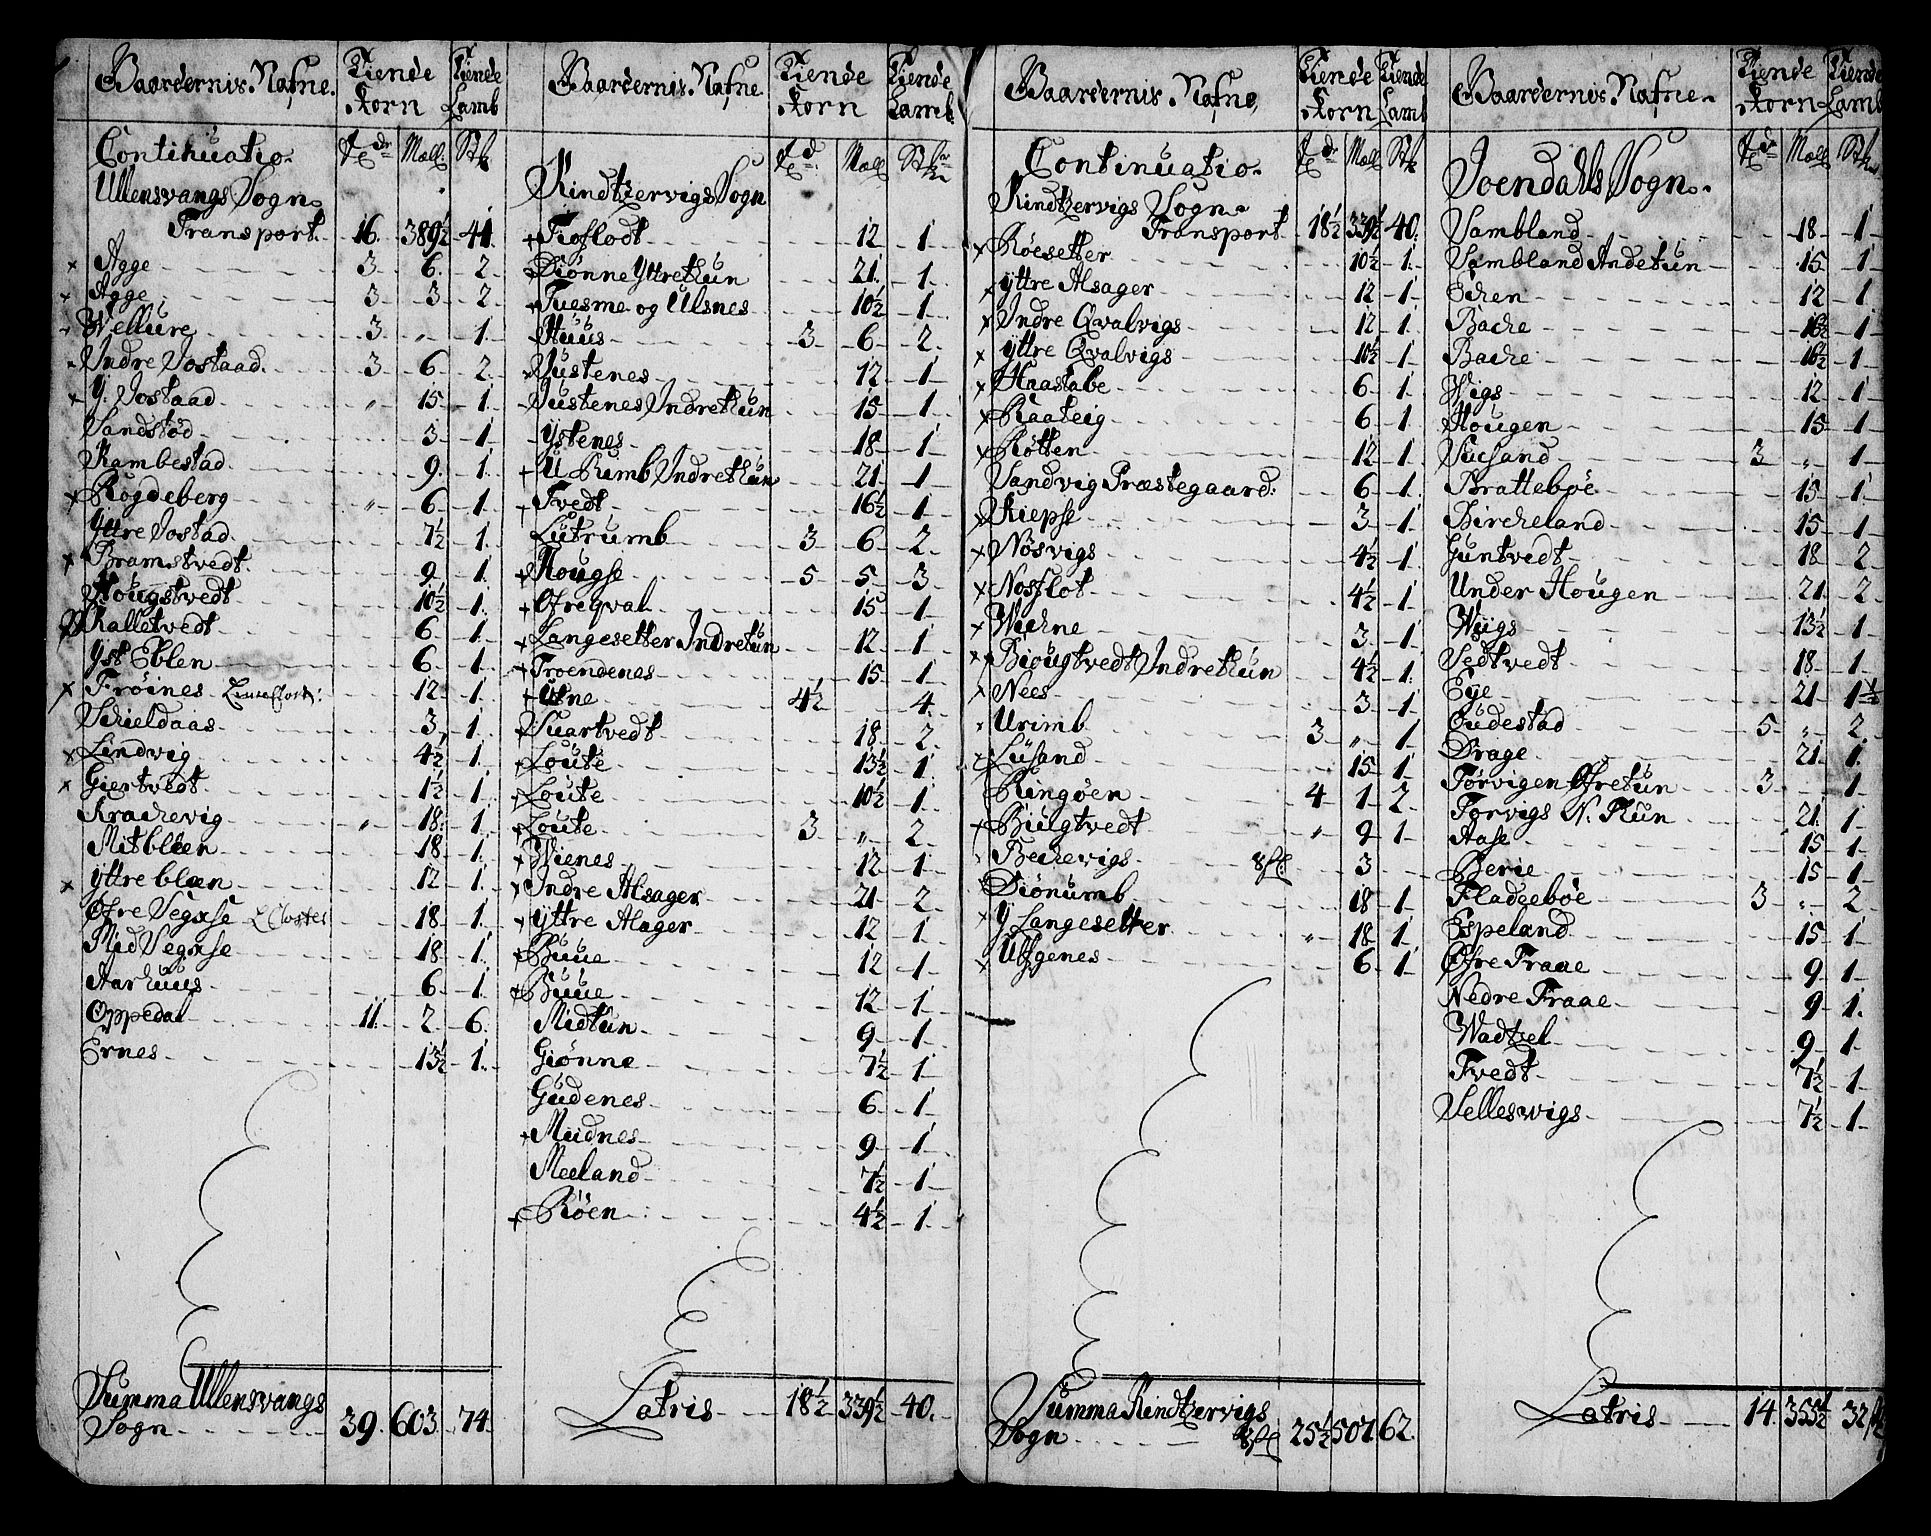 Gaardernis Nafne. Tiende Korn Tiende Lamb
Continuatio. Td. Mæll. Stk
Ullensvangs Sogn.
Transport. 16. 389½ 41
Agge 3 6. 2
Agge 3 3 2
Vellure 3 „ 1
Indre Jostaad. 3 6 2
Y. Jostaad „ 15 1
Sandstød 3 1
Rambestad 9. 1
Røgdeberg „ 6 1
Yttre Jostad 7½ 1
Bramstvedt. 9 1
Hougstvedt 10½ 1
Kalletvedt 6 1
Yst Eblen 6 1
Frøines 12 1
Schieldaas 3 1
Lindvig 4½ 1
Giertvedt 1½ 1
Krachevig „ 18. 1
Mitblæn 18 1
Yttre blæn 12 1
Øfre Segxse L Closter 18 1
Mid Segxse 18 1
Aarhuus 6 1
Oppedal 11. 2 6
Ernes 13½ 1
Summa Ullensvangs
Sogn 39. 603. 74.
Gaardernis Nafne Tiende Korn Tiende Lamb
Td. Mæll Stk
Kindtzervigs Sogn
Tioflodt 12 1
Diønne Yttrethun 21 1
Tuesme og Ulsnes 10½ 1
Huus 3 6 2
Justenes 12 1
Justenes Indrethun 15 1
Ystenes 18 1
U Rimb Indrethun 21 1
Tvedt 16½ 1
Lutrumb 3 6 2
Kougse 5 5 3
Ofreqval 15 1
Langesetter Indretun 12 1
Troendenes 15 1
Utne 4½ 4
Suartvedt 18 2
Loute 13½ 1
Loute 10½ 1
Loute 3 „ 2
Wienes 12 1
Indre Alsager 21 2
Yttre Alager 12 1
Buue 12 1
Buue 12 1
Midtun 9 1
Giønne 7½ 1
Gudenes 6 1
Mudnes 9 1
Meeland 7½ 1
Røen 4½ 1
Latris 18½ 339½ 40.
Gaardernis Nafne, Tiende Korn Tiende Lamb
Continuatio. Td Mæll Stk
Kindtzervigs Sogn
Transport 18½ 339½ 40.
Røesetter 10½ 1
yttre Alsager 12 1
Indre Qvalvigs 12 1
yttre Qvalvigs 10½ 1
Haastabe 6 1
Raateig 6 1
Røtten 12 1
Sandvig Præstegaard 6 1
Kiepse 3 1
Nøsvigs 4½ 1
Nosflot 4½ 1
Wichne 3 1
Biougtvedt Indrethun 4½ 1
Nees 3 1
Urimb 3 „ 1
Lusand 15 1
Ringøen 4 1 2
Biugtvedt „ 9 1
Bechevigs 3
Diønumb 18 1
Y Langesetter „ 18 1
Utsgenes 6 1
Summa Kindtzervigs
Sogn 25½ 507 62.
Gaardernis Nafne Tiende Korn Tiende Lamb
Td Mæll Stk
Joendahls Sogn.
Sambland 18 1
Sambland Andetun 15 1
Echen 12 1
Bache 16½ 1
Bache 16½ 1
Vigs 12 1
Hougen 15 1
Suesand 3 „ 1
Brattebøe 15 1
Bircheland 15 1
Guntvedt 18 2
Under Hougen 21 2
Wiigs 13½ 1
Sedtvedt 18 1
Eye 21 1½
Cudestad 5 „ 2
Drage 21 1
Tørvigen Øfretun 3 1
Torvigs N. Thun 21 1
Aase 15 1
Berie 15 1
Fladgebøe 3 „ 2
Espeland 15 1
Øfre Traae 9 1
Nedre Traae 9 1
Wadtzel 9 1
Tvedt 7½ 1
Selleswigs 7½ 1
Latris 14. 355½ 32½